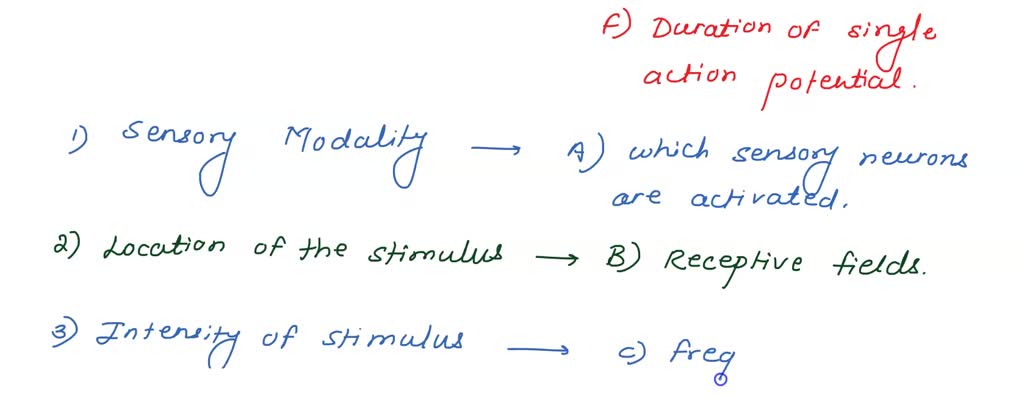 f) Duration of single
action potential.
1) Sensory Modality → A) which sensory neurons
are activated.
2) Location of the stimulus → B) Receptive fields.
3) Intensity of stimulus → c) freq